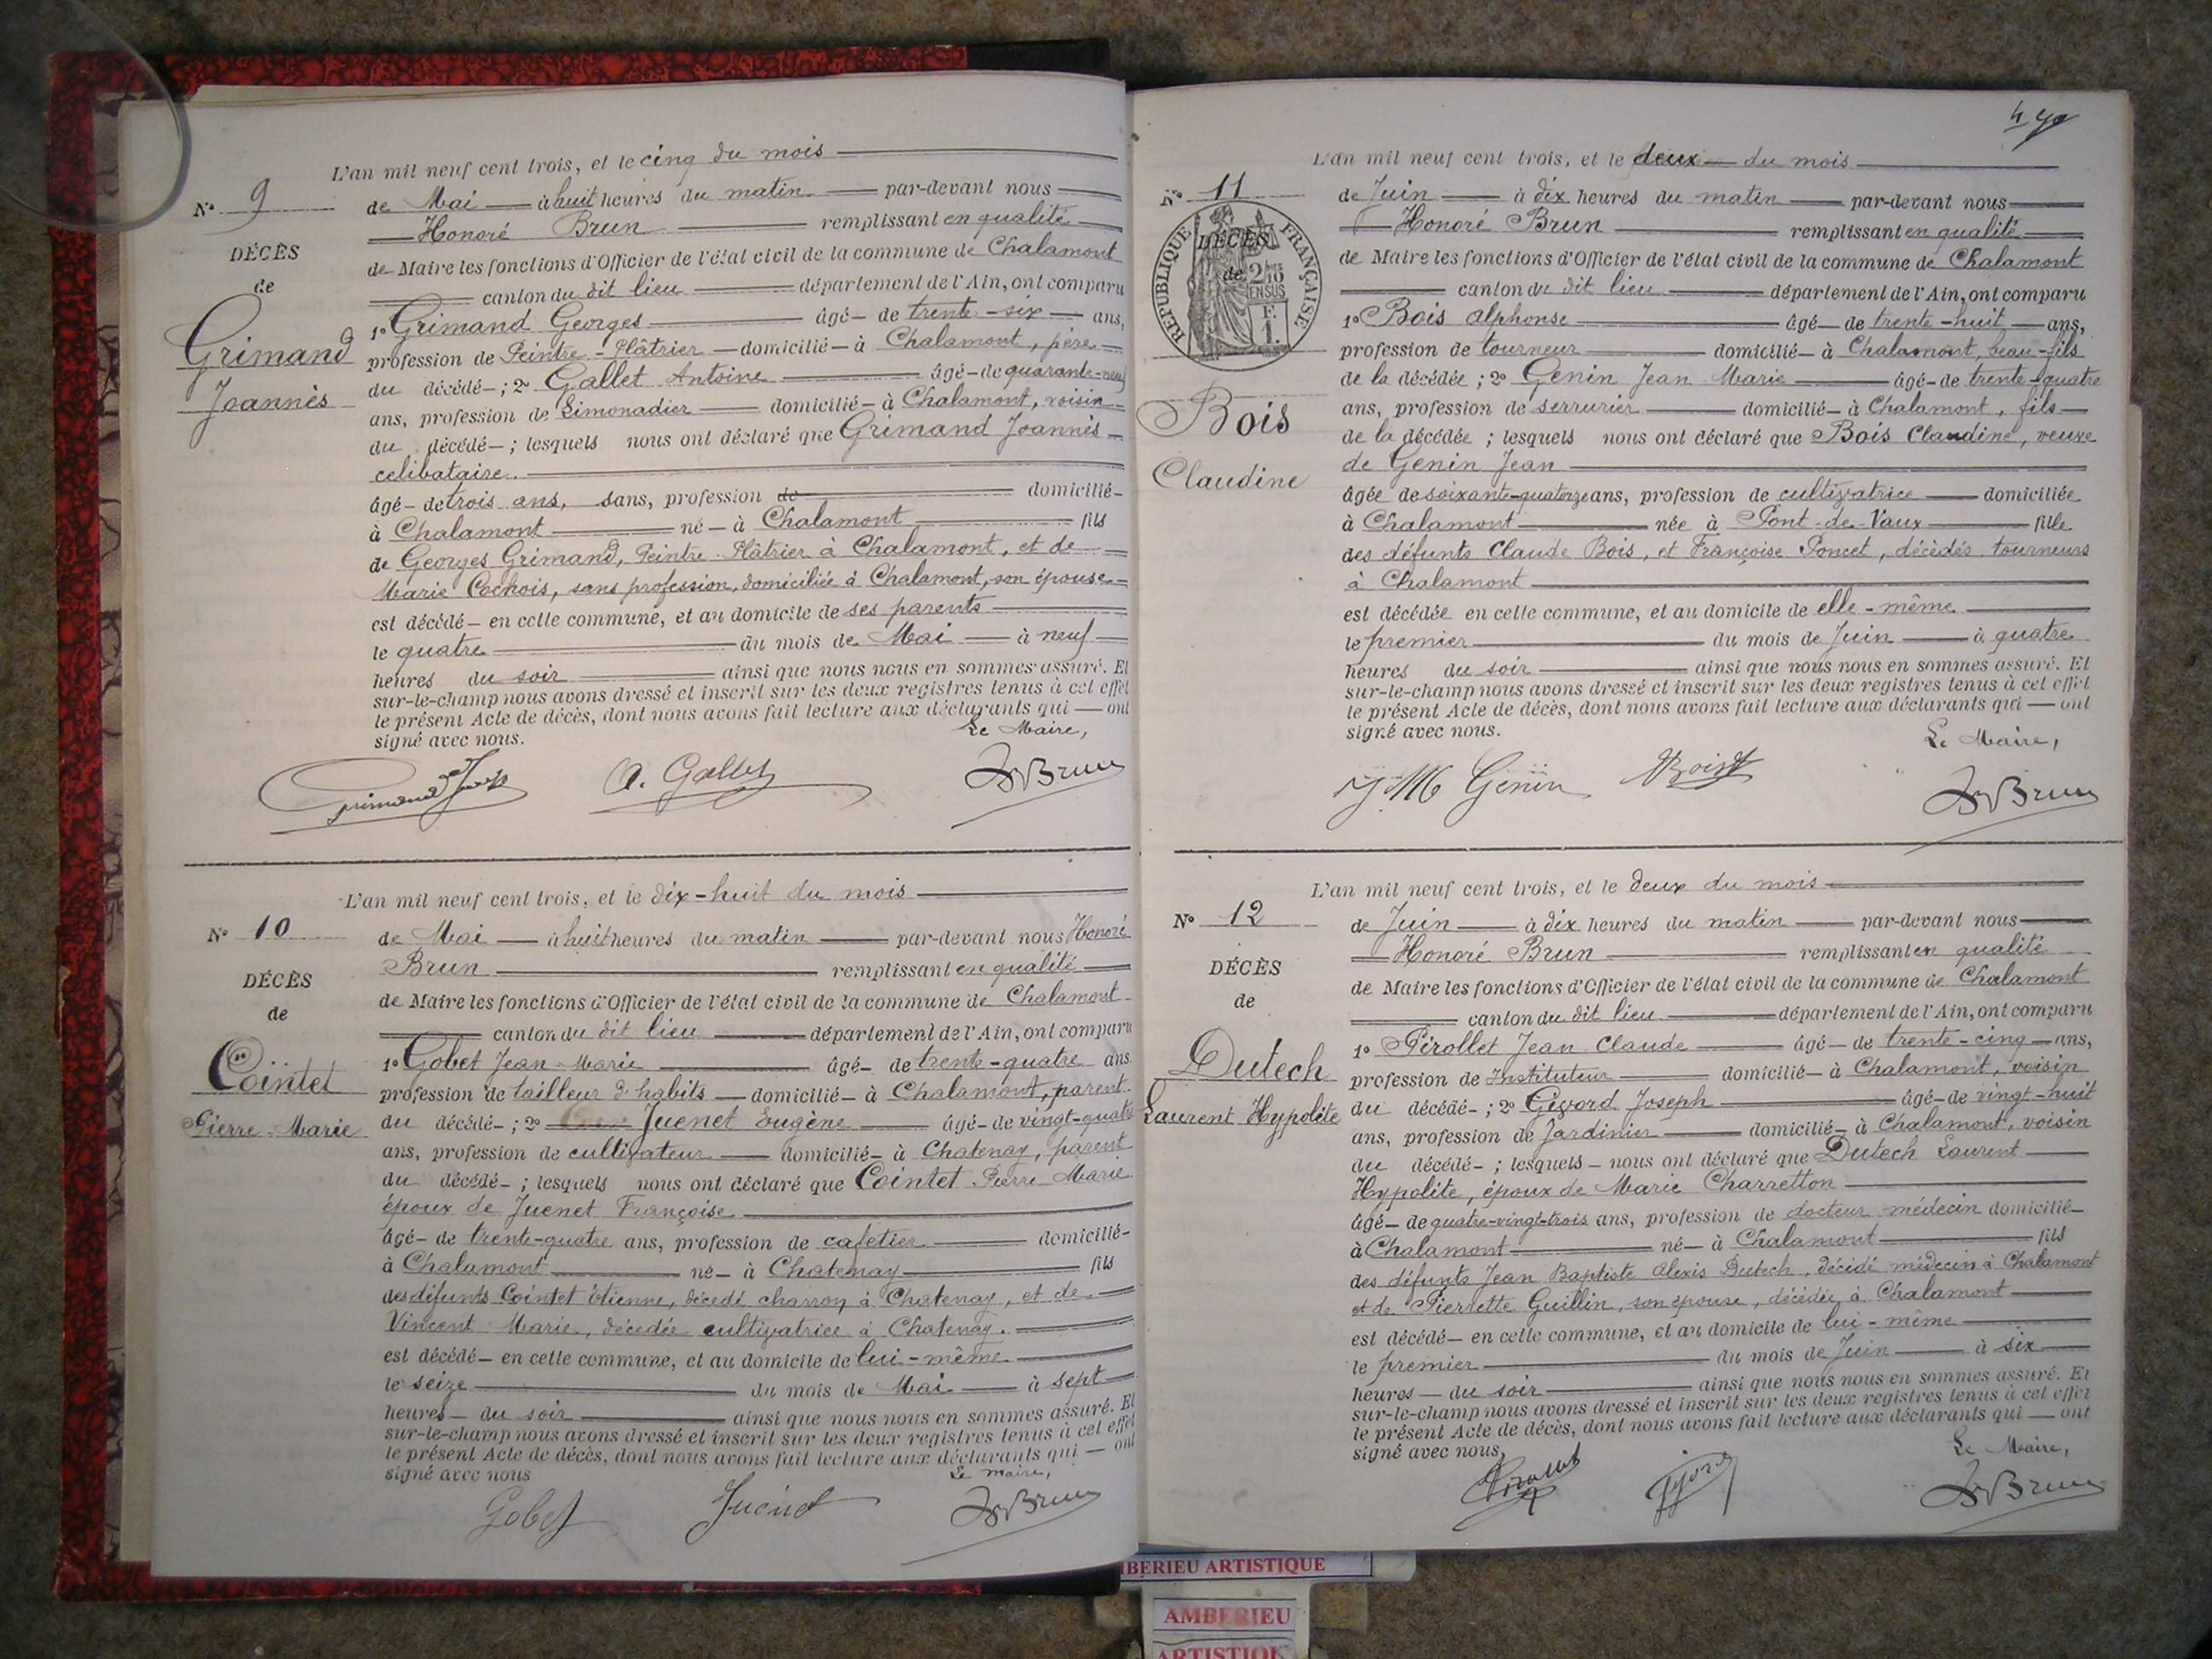 L'an mil neuf cent trois, et le cinq du mois
N° 9
de Mai à huit heures du matin par-devant nous
Honoré Brun remplissant en qualité
DÉCÈS
de Maire les fonctions d'Officier de l'état civil de la commune de Chalamont
de
canton du dit lieu département de l'Ain, ont comparu
Grimand
1° Grimand Georges âgé de trente-six ans,
profession de Peintre-Plâtrier domicilié à Chalamont, père
Joannès
du décédé ; 2° Gallet Antoine âgé de quarante-neuf
ans, profession de Limonadier domicilié à Chalamont, voisin
du décédé ; lesquels nous ont déclaré que Grimand Joannès
celibataire
âgé de trois ans, sans, profession de domicilié
à Chalamont né à Chalamont fils
de Georges Grimand, Peintre-Plâtrier à Chalamont, et de
Marie Cochois, sans profession, domiciliée à Chalamont, son épouse
est décédé en cette commune, et au domicile de ses parents
le quatre du mois de Mai à neuf
heures du soir ainsi que nous nous en sommes assuré. Et
sur-le-champ nous avons dressé et inscrit sur les deux registres tenus à cet effet
le présent Acte de décès, dont nous avons fait lecture aux déclarants qui ont
signé avec nous.
Le Maire,
Grimand
A. Gallet
Brun
L'an mil neuf cent trois, et le dix-huit du mois
N° 10
de Mai à huit heures du matin par-devant nous Honoré
Brun remplissant en qualité
DÉCÈS
de Maire les fonctions d'Officier de l'état civil de la commune de Chalamont
de
canton du dit lieu département de l'Ain, ont comparu
Cointet
1° Gobet Jean-Marie âgé de trente-quatre ans
profession de tailleur d'habits domicilié à Chalamont, parent
Pierre-Marie
du décédé ; 2° Juenet Eugène âgé de vingt-quatre
ans, profession de cultivateur domicilié à Chatenay, parent
du décédé ; lesquels nous ont déclaré que Cointet Pierre-Marie
époux de Juenet Françoise
âgé de trente-quatre ans, profession de cafetier domicilié
à Chalamont né à Chatenay fils
des défunts Cointet étienne, décédé charron à Chatenay, et de
Vincent Marie, décédée cultivatrice à Chatenay.
est décédé en cette commune, et au domicile de lui-même
le seize du mois de Mai à sept
heures du soir ainsi que nous nous en sommes assuré. Et
sur-le-champ nous avons dressé et inscrit sur les deux registres tenus à cet effet
le présent Acte de décès, dont nous avons fait lecture aux déclarants qui ont
signé avec nous
Le maire,
Gobet
Juenet
Brun
L'an mil neuf cent trois, et le deux du mois
N° 11
de Juin à dix heures du matin par-devant nous
Honoré Brun remplissant en qualité
RÉPUBLIQUE FRANÇAISE
DÉCÈS
de
de Maire les fonctions d'Officier de l'état civil de la commune de Chalamont
canton du dit lieu département de l'Ain, ont comparu
1° Bois Alphonse âgé de trente-huit ans,
profession de tourneur domicilié à Chalamont, beau-fils
de la décédée ; 2° Genin Jean Marie âgé de trente-quatre
Bois
ans, profession de serrurier domicilié à Chalamont, fils
de la décédée ; lesquels nous ont déclaré que Bois Claudine, veuve
Claudine
de Genin Jean
âgée de soixante-quatorze ans, profession de cultivatrice domiciliée
à Chalamont née à Pont-de-Vaux fille
des défunts Claude Bois, et Françoise Poncet, décédés tourneurs
à Chalamont
est décédée en cette commune, et au domicile de elle-même
le premier du mois de Juin à quatre
heures du soir ainsi que nous nous en sommes assuré. Et
sur-le-champ nous avons dressé et inscrit sur les deux registres tenus à cet effet
le présent Acte de décès, dont nous avons fait lecture aux déclarants qui ont
signé avec nous.
Le Maire,
J M Genin
Bois
Brun
L'an mil neuf cent trois, et le deux du mois
N° 12
de Juin à dix heures du matin par-devant nous
Honoré Brun remplissant en qualité
DÉCÈS
de Maire les fonctions d'Officier de l'état civil de la commune de Chalamont
de
canton du dit lieu département de l'Ain, ont comparu
Dutech
1° Pirollet Jean Claude âgé de trente-cinq ans,
profession de Instituteur domicilié à Chalamont, voisin
Laurent Hypolite
du décédé ; 2° Givord Joseph âgé de vingt-huit
ans, profession de Jardinier domicilié à Chalamont, voisin
du décédé ; lesquels nous ont déclaré que Dutech Laurent
Hypolite, époux de Marie Charretton
âgé de quatre-vingt-trois ans, profession de docteur médecin domicilié
à Chalamont né à Chalamont fils
des défunts Jean Baptiste Alexis Dutech, décédé médecin à Chalamont
et de Pierrette Guillin, son épouse, décédée à Chalamont
est décédé en cette commune, et au domicile de lui-même
le premier du mois de Juin à six
heures du soir ainsi que nous nous en sommes assuré. Et
sur-le-champ nous avons dressé et inscrit sur les deux registres tenus à cet effet
le présent Acte de décès, dont nous avons fait lecture aux déclarants qui ont
signé avec nous,
Le Maire,
Brun
BERIEU ARTISTIQUE
AMBERIEU